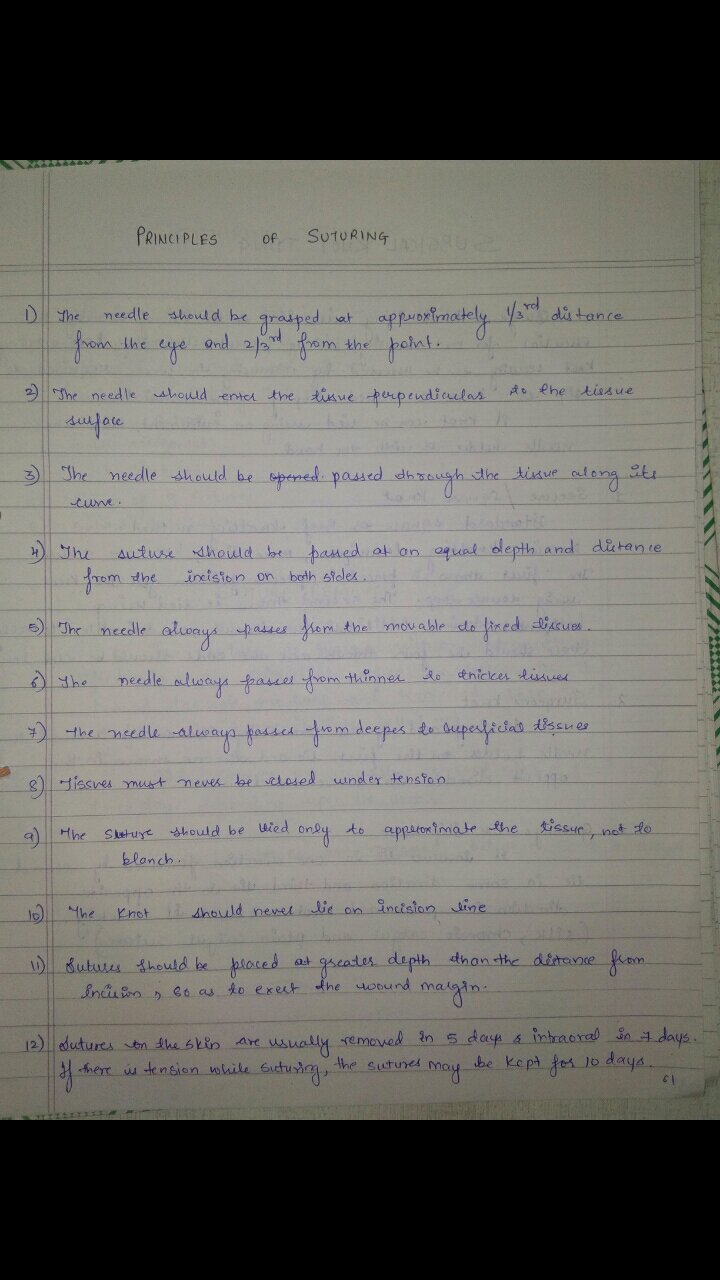 PRINCIPLES OF SUTURING
1) The needle should be grasped at approximately 1/3rd distance
from the eye and 2/3rd from the point.
2) The needle should enter the tissue perpendicular to the tissue
surface
3) The needle should be opened. passed through the tissue along its
curve.
4) The suture should be passed at an equal depth and distance
from the incision on both sides.
5) The needle always passes from the movable to fixed tissues.
6) The needle always passes from thinner to thicker tissues
7) The needle always passes from deeper to superficial tissues
8) Tissues must never be closed under tension
9) The suture should be tied only to approximate the tissue, not to
blanch.
10) The knot should never lie on incision line
11) Sutures should be placed at greater depth than the distance from
incision, so as to exert the wound margin.
12) Sutures on the skin are usually removed in 5 days & intraoral in 7 days.
If there is tension while suturing, the sutures may be kept for 10 days.
61